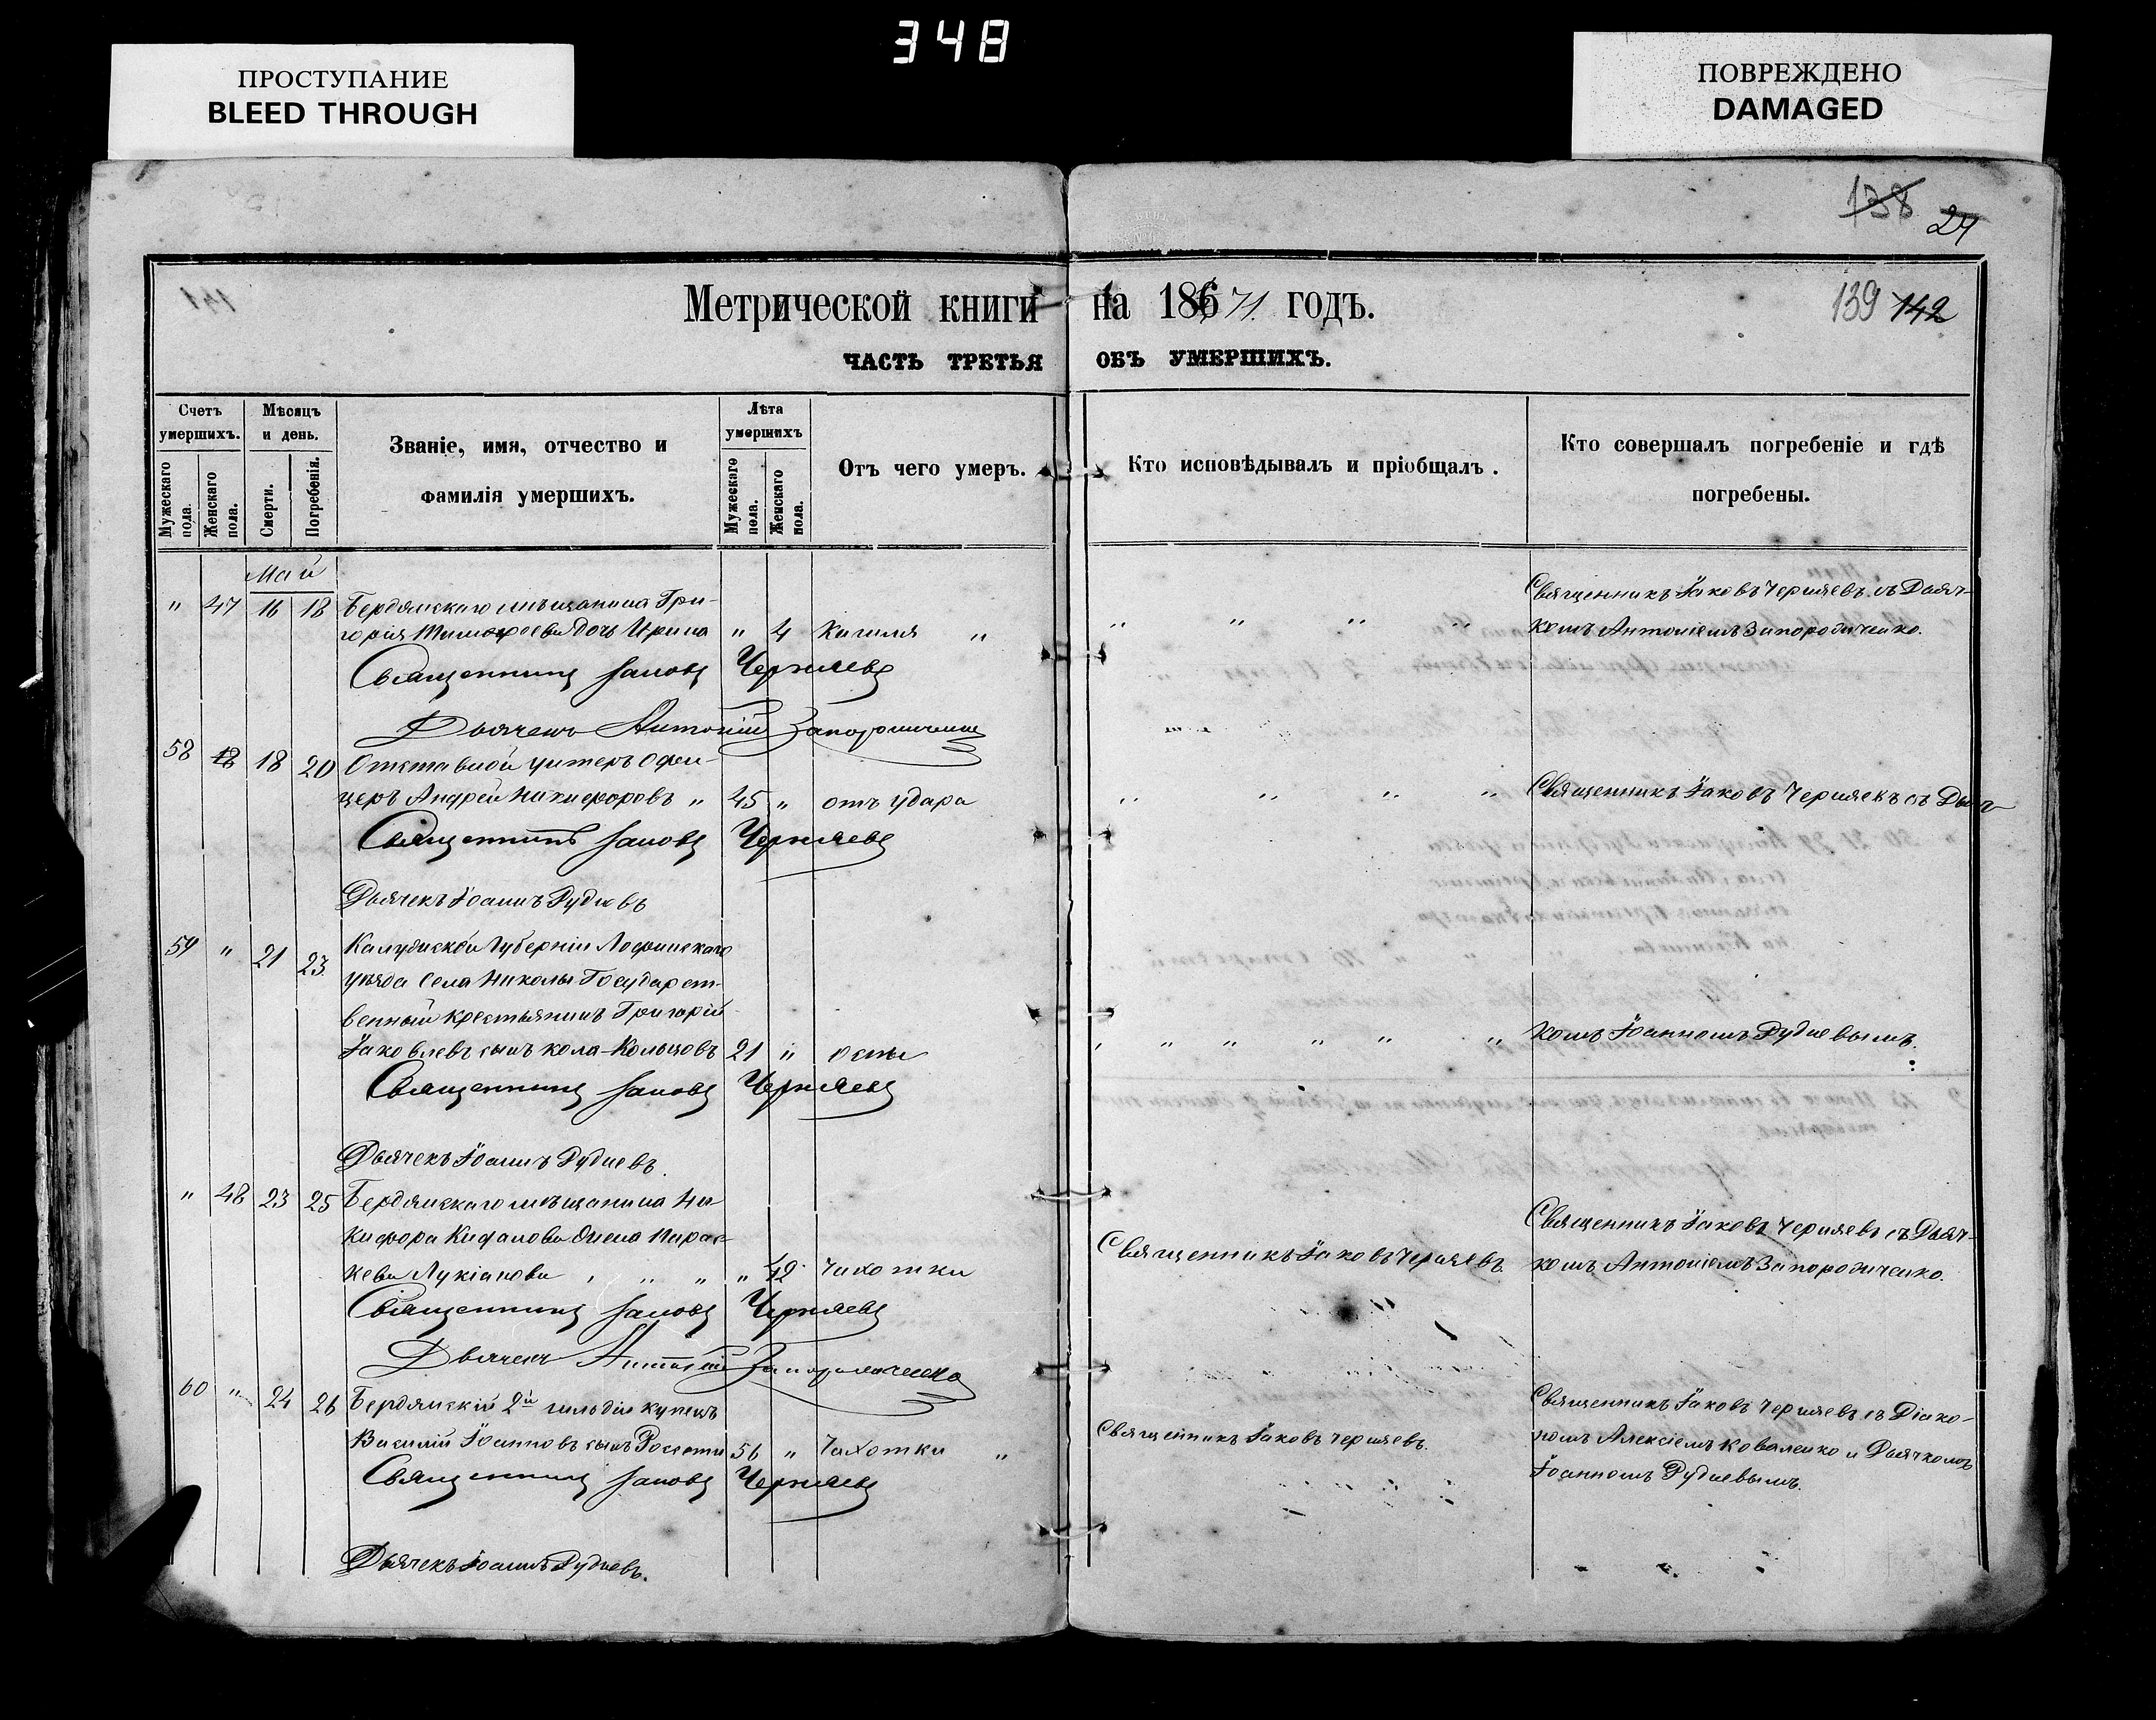 348
ПРОСТУПАНИЕ
BLEED THROUGH
ПОВРЕЖДЕНО
DAMAGED
138 24
Метрической книги на 1871 годъ.
139 142
ЧАСТЬ ТРЕТЬЯ ОБЪ УМЕРШИХЪ.
Счетъ умершихъ.
Мужескаго пола.
Женскаго пола.
Мѣсяцъ и день.
Смерти.
Погребенія.
Званіе, имя, отчество и
фамилія умершихъ.
Лѣта умершихъ
Мужескаго пола.
Женскаго пола.
Отъ чего умеръ.
Кто исповѣдывалъ и пріобщалъ.
Кто совершалъ погребеніе и гдѣ
погребены.
Май
" 47 16 18 Бердянскаго мѣщанина Гри-
горія Тимофеева дочь Ирина " 4 Кашля "
Священникъ Іаковъ Черняевъ
Дьячекъ Антоній Запорожченко
Священникъ Іаковъ Черняевъ съ Дьяч-
комъ Антоніемъ Запорожченко.
58 18 18 20 Отставной унтеръ офи-
церъ Андрей Никифоровъ " 45 " отъ удара
Священникъ Іаковъ Черняевъ
Дьячекъ Іоаннъ Рудневъ
Священникъ Іаковъ Черняевъ съ Дьяч-
59 " 21 23 Калужской Губерніи
уѣзда Села Николы Государст-
венный крестьянинъ Григорій
Іаковлевъ сынъ Кольцовъ 21 " оспы
Священникъ Іаковъ Черняевъ
Дьячекъ Іоаннъ Рудневъ.
комъ Іоанномъ Рудневымъ.
" 48 23 25 Бердянскаго мѣщанина Ни-
кифора жена Парас-
кева Лукіанова " " " " 42 Чахотки
Священникъ Іаковъ Черняевъ
Дьячекъ Антоній Запорожченко
Священникъ Іаковъ Черняевъ.
Священникъ Іаковъ Черняевъ съ Дьяч-
комъ Антоніемъ Запорожченко.
60 " 24 26 Бердянскій 2й гильдіи купецъ
Василій Іоанновъ сынъ Россети 56 " Чахотки "
Священникъ Іаковъ Черняевъ
Дьячекъ Іоаннъ Рудневъ.
Священникъ Іаковъ Черняевъ.
Священникъ Іаковъ Черняевъ съ Діако-
номъ Алексіемъ Коваленко и Дьячкомъ
Іоанномъ Рудневымъ.